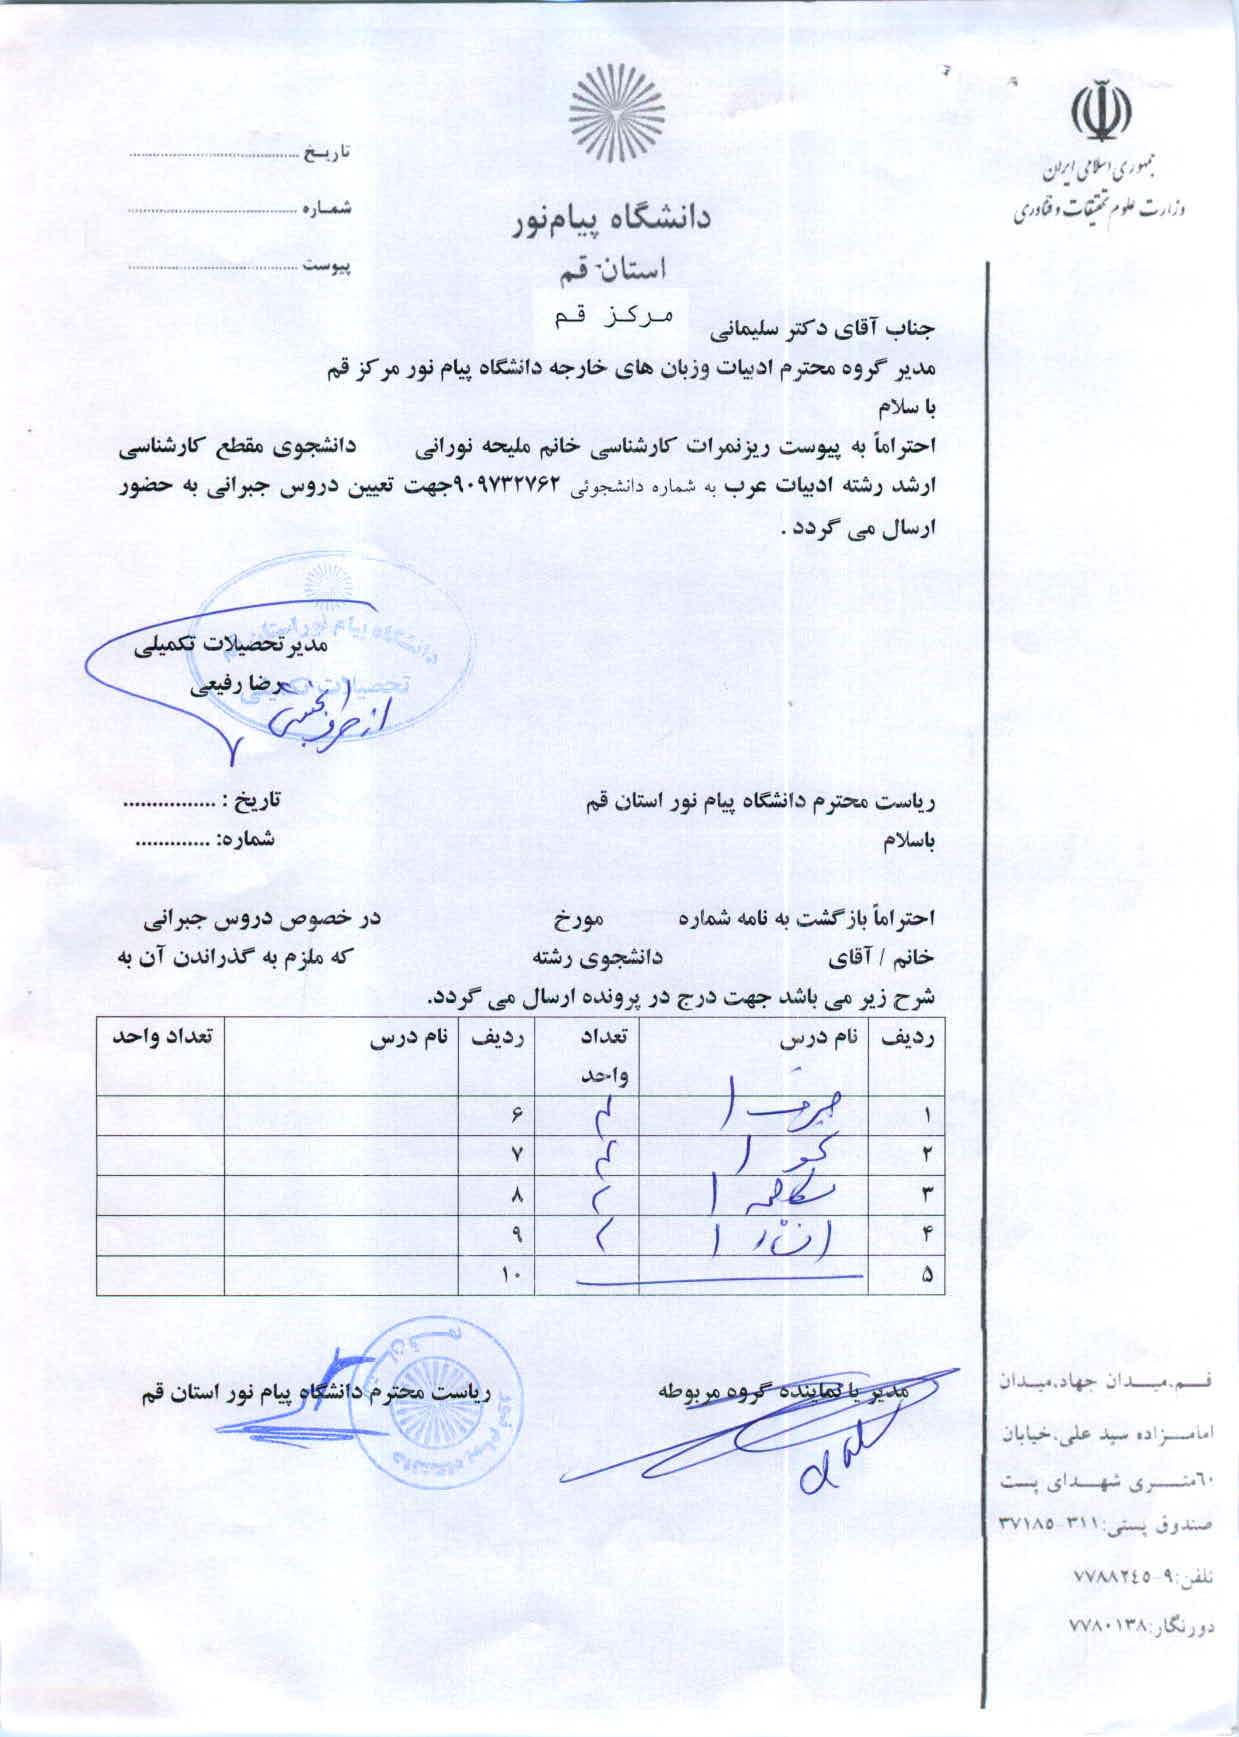 جمهوری اسلامی ایران
وزارت علوم تحقیقات و فناوری
دانشگاه پیام‌نور
استان قم
مرکز قم
تاریخ
شماره
پیوست
جناب آقای دکتر سلیمانی
مدیر گروه محترم ادبیات وزبان های خارجه دانشگاه پیام نور مرکز قم
با سلام
احتراماً به پیوست ریزنمرات کارشناسی خانم ملیحه نورانی دانشجوی مقطع کارشناسی
ارشد رشته ادبیات عرب به شماره دانشجوئی ۹۰۹۷۳۲۷۶۲جهت تعیین دروس جبرانی به حضور
ارسال می گردد .
مدیرتحصیلات تکمیلی
رضا رفیعی
از طرف
تحصیلات تکمیلی
ریاست محترم دانشگاه پیام نور استان قم
تاریخ : ................
باسلام
شماره: .............
احتراماً بازگشت به نامه شماره مورخ در خصوص دروس جبرانی
خانم / آقای دانشجوی رشته که ملزم به گذراندن آن به
شرح زیر می باشد جهت درج در پرونده ارسال می گردد.
ردیف نام درس تعداد واحد ردیف نام درس تعداد واحد
۱ صرف ۱ ۴ ۶
۲ نحو ۱ ۴ ۷
۳ مکالمه ۱ ۲ ۸
۴ انشاء ۱ ۲ ۹
۵ ۱۰
مدیر یا نماینده گروه مربوطه
ریاست محترم دانشگاه پیام نور استان قم
دانشگاه پیام نور
قم.میدان جهاد.میدان
امامزاده سید علی.خیابان
٦٠متری شهدای پست
صندوق پستی:٣١١-٣٧١٨٥
تلفن:٩-٧٧٨٨٢٤٥
دورنگار:٧٧٨٠١٣٨